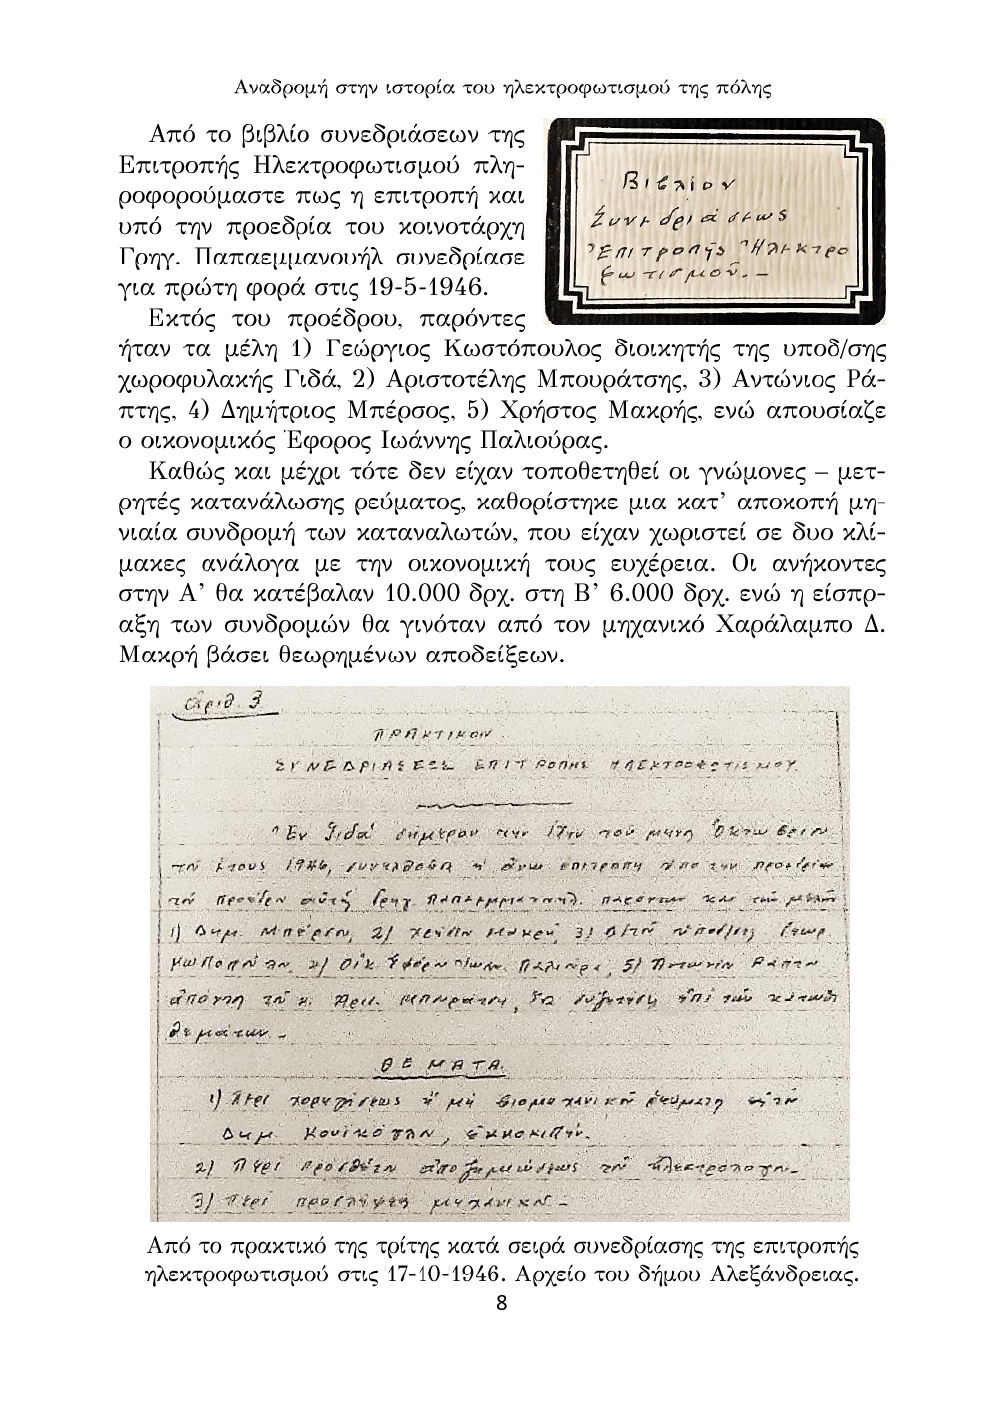 Αναδρομή στην ιστορία του ηλεκτροφωτισμού της πόλης
Από το βιβλίο συνεδριάσεων της
Επιτροπής Ηλεκτροφωτισμού πλη-
ροφορούμαστε πως η επιτροπή και
υπό την προεδρία του κοινοτάρχη
Γρηγ. Παπαεμμανουήλ συνεδρίασε
για πρώτη φορά στις 19-5-1946.
Βιβλίον
Συνεδριάσεως
Ἐπιτροπῆς Ἠλεκτρο
φωτισμοῦ.-
Εκτός του προέδρου, παρόντες
ήταν τα μέλη 1) Γεώργιος Κωστόπουλος διοικητής της υποδ/σης
χωροφυλακής Γιδά, 2) Αριστοτέλης Μπουράτσης, 3) Αντώνιος Ρά-
πτης, 4) Δημήτριος Μπέρσος, 5) Χρήστος Μακρής, ενώ απουσίαζε
ο οικονομικός Έφορος Ιωάννης Παλιούρας.
Καθώς και μέχρι τότε δεν είχαν τοποθετηθεί οι γνώμονες – μετ-
ρητές κατανάλωσης ρεύματος, καθορίστηκε μια κατ’ αποκοπή μη-
νιαία συνδρομή των καταναλωτών, που είχαν χωριστεί σε δυο κλί-
μακες ανάλογα με την οικονομική τους ευχέρεια. Οι ανήκοντες
στην Α’ θα κατέβαλαν 10.000 δρχ. στη Β’ 6.000 δρχ. ενώ η είσπρ-
αξη των συνδρομών θα γινόταν από τον μηχανικό Χαράλαμπο Δ.
Μακρή βάσει θεωρημένων αποδείξεων.
Αριθ. 3
ΠΡΑΚΤΙΚΟΝ
ΣΥΝΕΔΡΙΑΣΕΩΣ ΕΠΙΤΡΟΠΗΣ ΗΛΕΚΤΡΟΦΩΤΙΣΜΟΥ
Ἐν Γιδᾷ σήμερον τὴν 17ην τοῦ μηνὸς Ὀκτωβρίου
τοῦ ἔτους 1946, συνελθοῦσα ἡ ἄνω ἐπιτροπὴ ὑπὸ τὴν προεδρίαν
τοῦ προέδρου αὐτῆς Γρηγ. Παπαεμμανουήλ παρόντων καὶ τῶν μελῶν
1) Δημ. Μπέρσου, 2) Χρήστου Μακρῆ, 3)
5) Ἀντωνίου Ράπτου
ἀπόντος τοῦ κ. Ἀρισ. Μπουράτση,
θεμάτων.-
ΘΕΜΑΤΑ
1) Περὶ χορηγήσεως ἢ μὴ βιομηχανικοῦ ρεύματος
Δημ.
2) Περὶ προσθέτου ἀποζημιώσεως τοῦ ἠλεκτρολόγου.-
3) Περὶ προσλήψεως μηχανικοῦ.-
Από το πρακτικό της τρίτης κατά σειρά συνεδρίασης της επιτροπής
ηλεκτροφωτισμού στις 17-10-1946. Αρχείο του δήμου Αλεξάνδρειας.
8